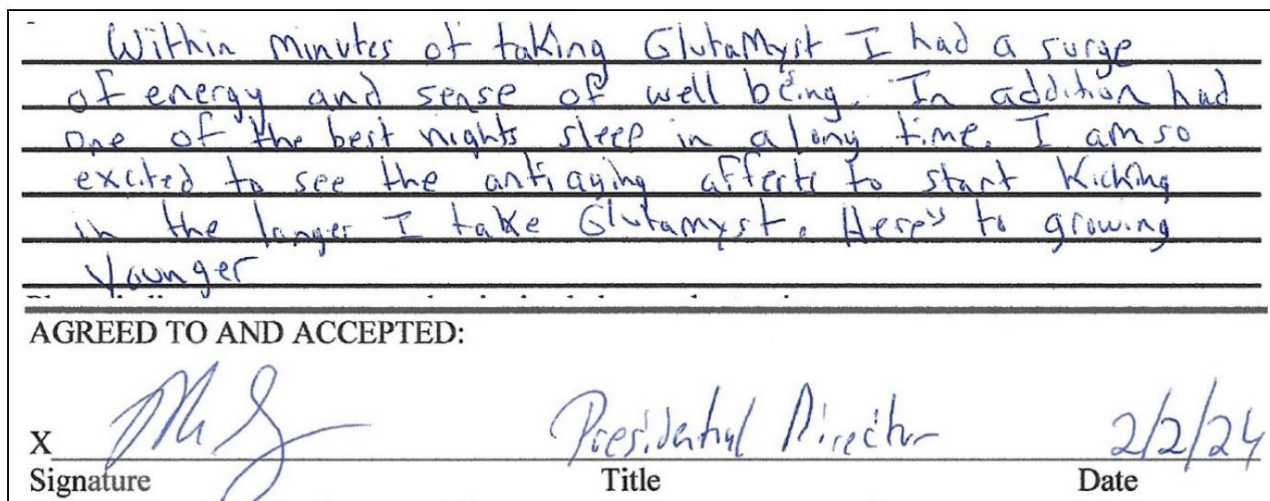 Within minutes of taking GlutaMyst I had a surge
of energy and sense of well being. In addition had
one of the best nights sleep in a long time. I am so
excited to see the anti aging affects to start Kicking
in the longer I take Glutamyst. Here's to growing
Younger
AGREED TO AND ACCEPTED:
X Presidential Director 2/2/24
Signature Title Date